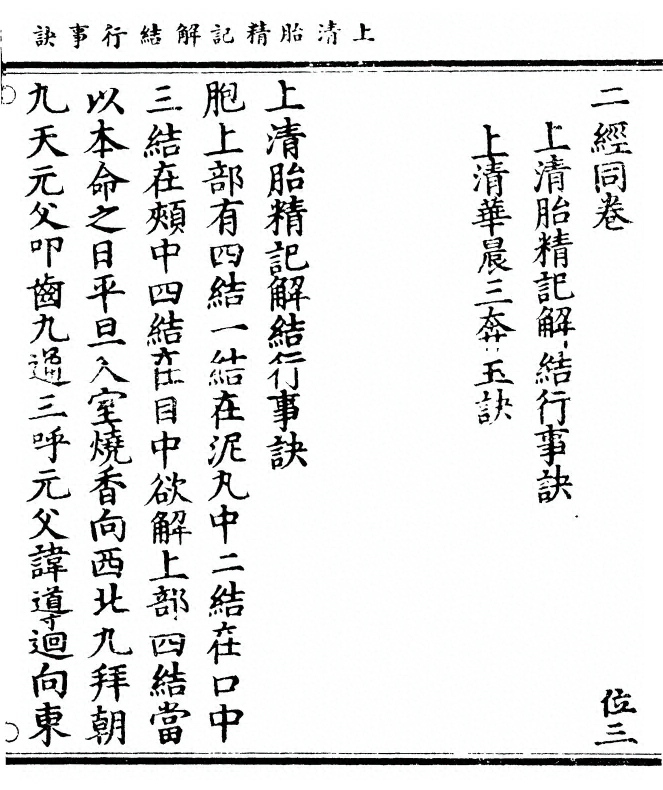 上清胎精記解結行事訣
二經同卷
位三
上清胎精記解結行事訣
上清華晨三奔玉訣
上清胎精記解結行事訣
胞上部有四結一結在泥丸中二結在口中
三結在頰中四結在目中欲解上部四結當
以本命之日平旦入室燒香向西北九拜朝
九天元父叩齒九通三呼元父諱導迴向東